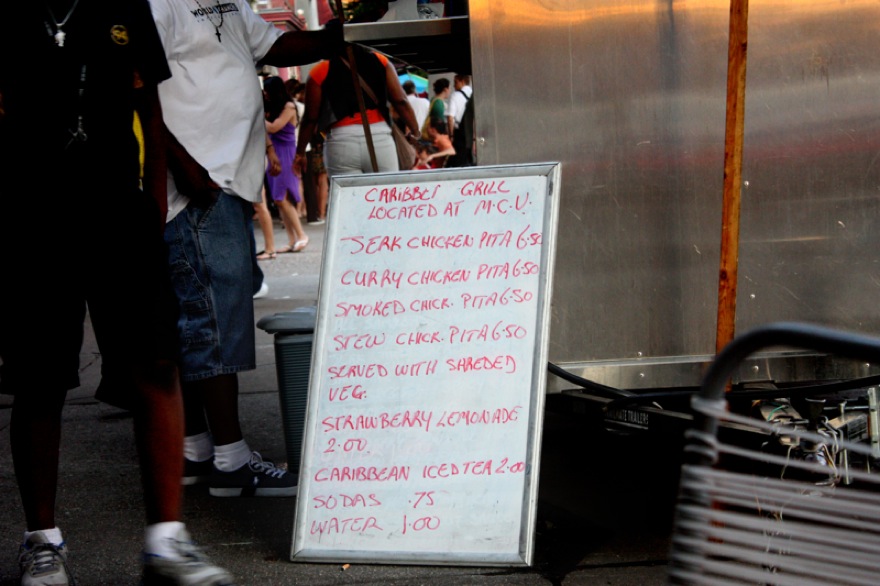 CARIBBET GRILL
LOCATED AT M.C.U.
JERK CHICKEN PITA 6.50
CURRY CHICKEN PITA 6.50
SMOKED CHICK. PITA 6.50
STEW CHICK. PITA 6.50
SERVED WITH SHREDED
VEG.
STRAWBERRY LEMONADE
2.00
CARIBBEAN ICED TEA 2.00
SODAS .75
WATER 1.00
TRAILERS